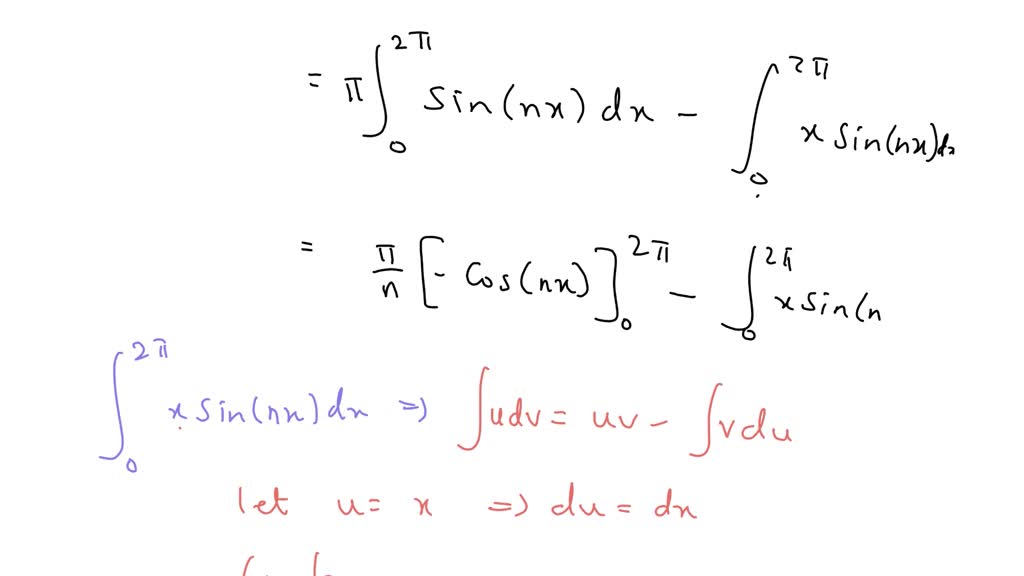 = π ∫₀^2π sin(nx) dx - ∫₀^2π x sin(nx) dx
= π/n [- cos(nx)]₀^2π - ∫₀^2π x sin(n
∫₀^2π x sin(nx) dx ⇒ ∫udv = uv - ∫vdu
let u = x ⇒ du = dx